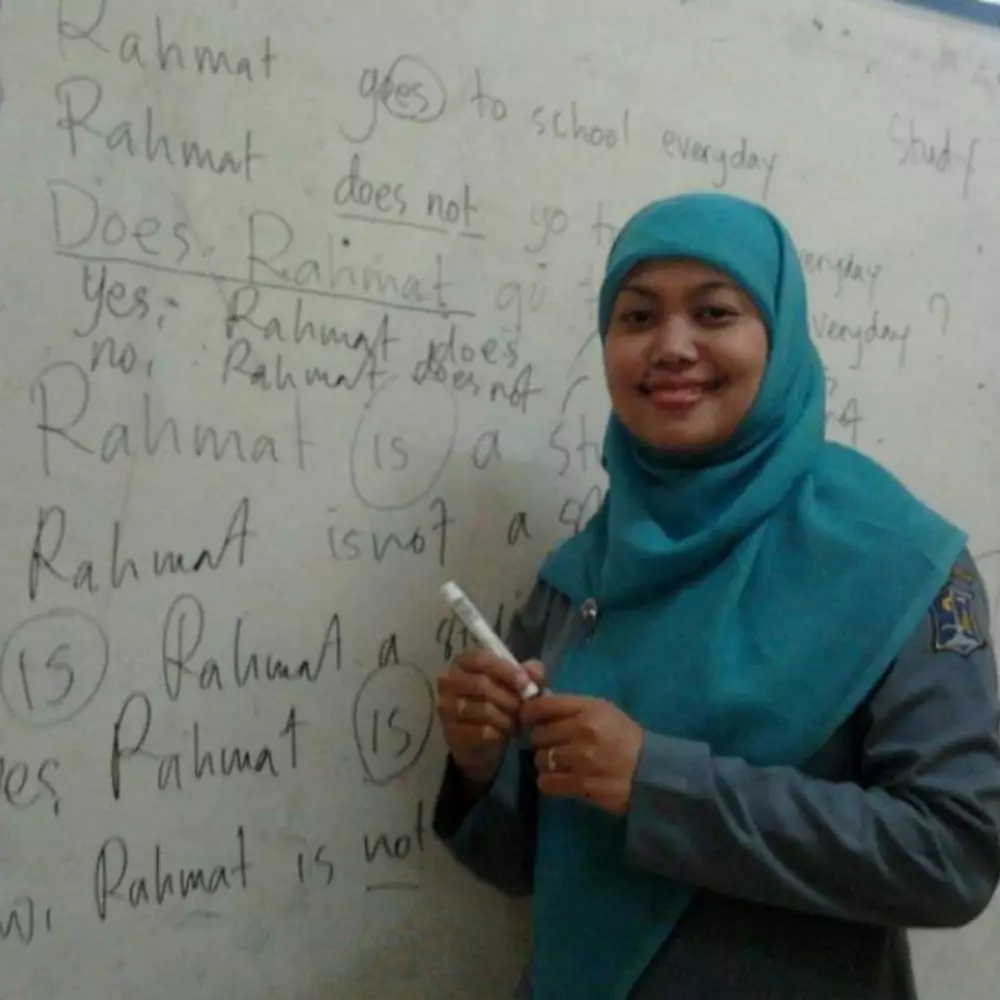 Rahmat goes to school everyday Study
Rahmat does not go everyday
Does Rahmat go everyday ?
yes, Rahmat does
no, Rahmat does not
Rahmat is a
Rahmat is not a
is Rahmat a
Rahmat is
Rahmat is not